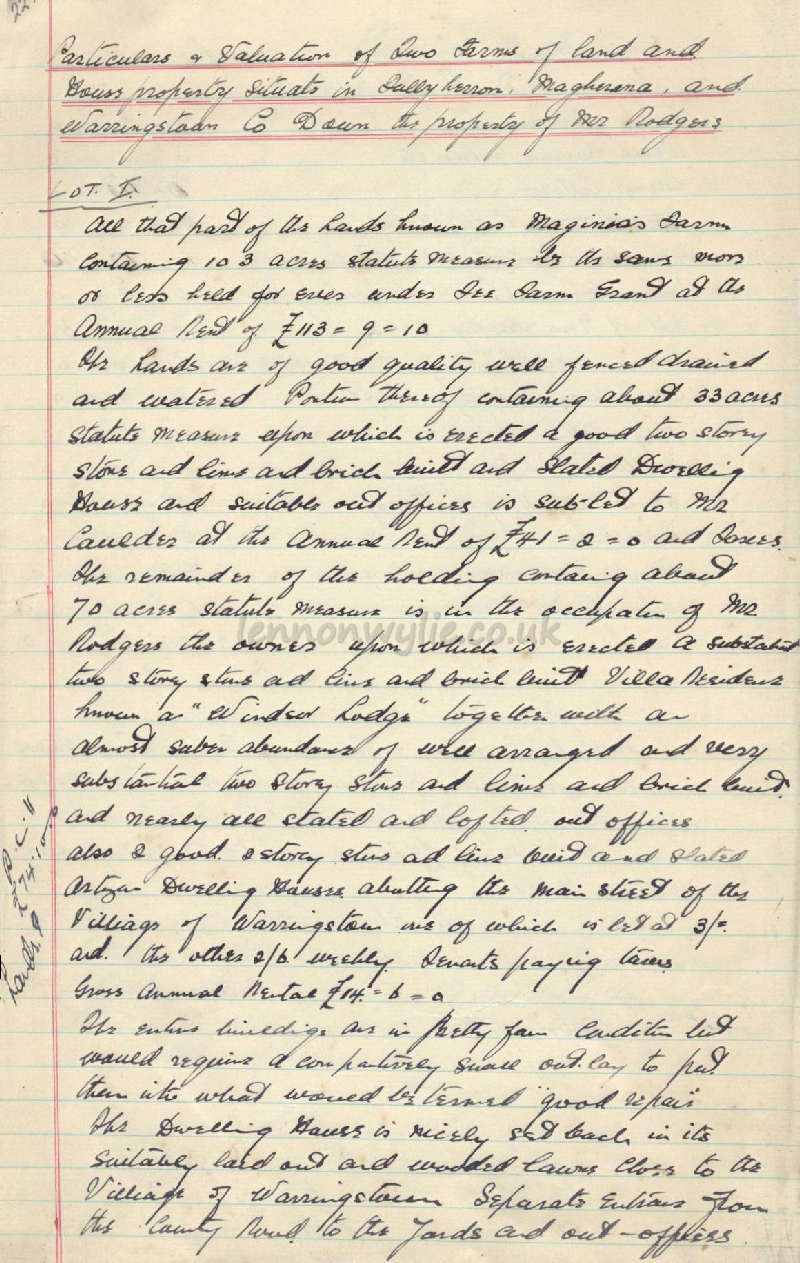 22
Particulars & Valuation of Two Farms of land and
House property situate in Tullyherron, Magherana, and
Warringstown Co Down the property of Mr Rodgers
LOT. I.
All that part of the Lands known as Maginis's Farm
Containing 103 acres statute measure be the same more
or less held for ever under Fee Farm Grant at the
Annual Rent of £113=9=10
The Lands are of good quality well fenced drained
and watered Portion thereof containing about 33 acres
Statute measure upon which is erected a good two storey
stone and lime and brick built and Slated Dwelling
House and suitable out offices is sub-let to Mr
Caulder at the Annual Rent of £41=2=0 and Taxes.
The remainder of the holding containg about
70 acres statute measure is in the occupation of Mr
Rodgers the owner upon which is erected a substantial
two story stone ad lime and brick built Villa Residence
known as "Windsor Lodge" together with an
almost super abundance of well arranged and very
substantial two story stone and lime and brick built
and nearly all slated and lofted out offices
also 2 good 2 story stone ad lime built and slated
Artizan Dwelling Houses abutting the main street of the
Village of Warringstown one of which is let at 3/=
and. the other 2/6 weekly. Tenants paying taxes
Gross Annual Rental £14=6=0
The entire buildings are in pretty fair Condition but
would require a comparitively small out-lay to put
them into what would be termed "good repair"
The Dwelling House is nicely set back in its
Suitably laid out and wooded lawns Close to the
Village of Warringstown Separate Entrance from
the County Road to the Yards and out-offices
lennonwylie.co.uk